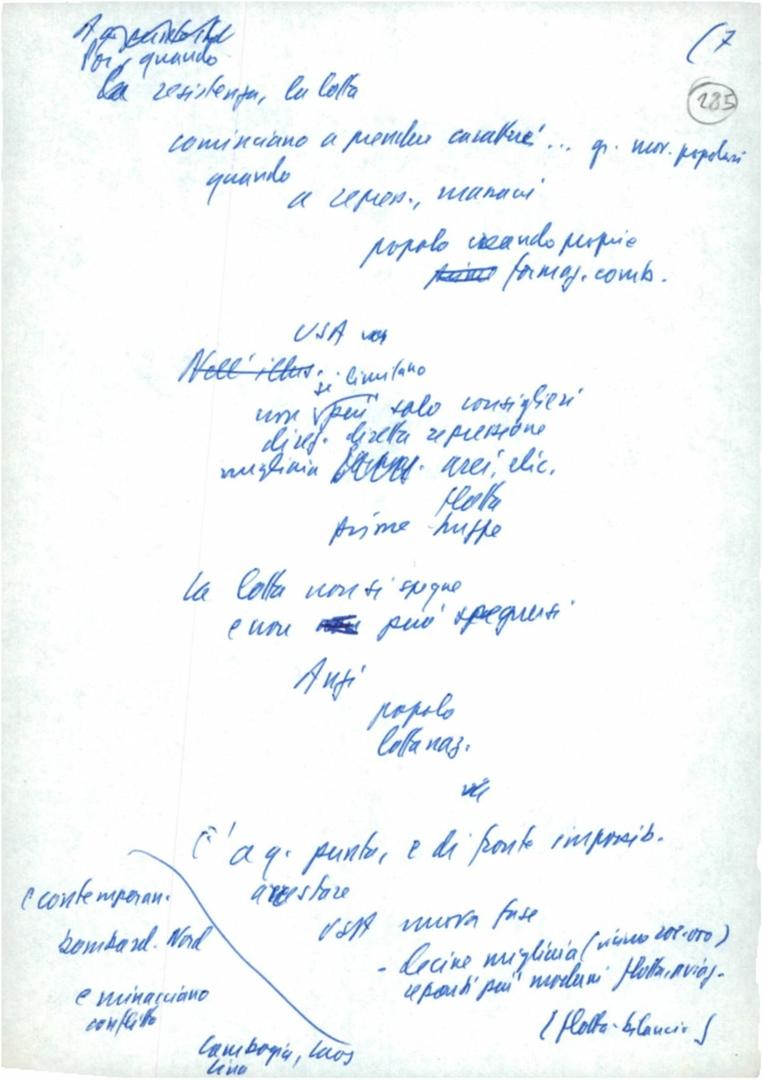 (7
285
Poi, quando
la resistenza, la lotta
cominciano a prendere caratteri... gr. mov. popolari
quando
a repress., massacri
popolo creando proprie
formaz. comb.
USA
Nell'illus.
si limitano
non più solo consiglieri
direz. diretta repressione
migliaia aerei, elic.
flotta
prime truppe
La lotta non si spegne
e non può spegnersi
Anzi
popolo
lotta naz.
E' a q. punto, e di fronte impossib.
arrestare
USA nuova fase
- decine migliaia (sino 200.000)
reparti più moderni flotta, aviaz.
(flotta - bilancio)
e contemporan.
bombard. Nord
e minacciano
conflitto
Cambogia, Laos
Cina